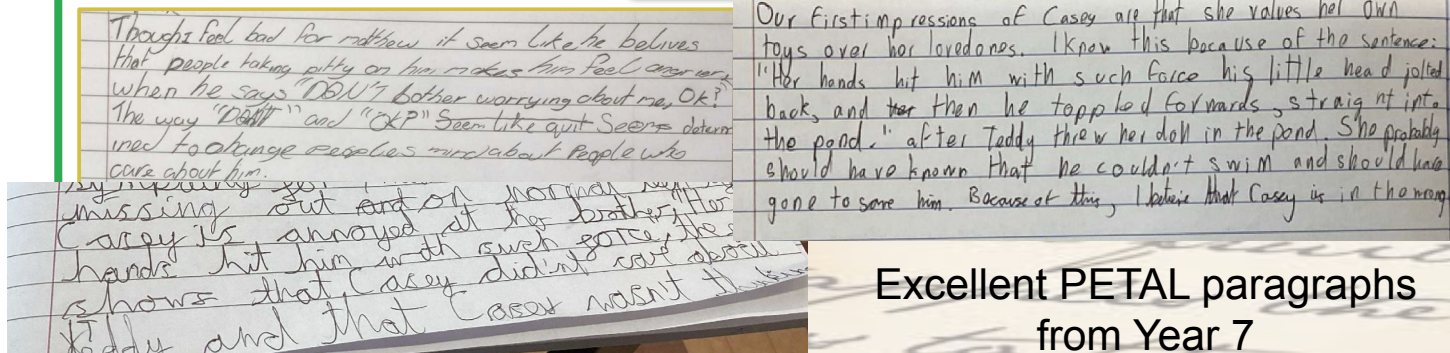 Though I feel bad for matthew it seem like he belives
that people taking pitty on him makes him feel angrier,
when he says "DON'T bother worrying about me, Ok?"
The way "DON'T" and "OK?" Seem like quit Seems determ
ined to change peoples mind about People who
care about him.
Our first impressions of Casey are that she values her own
toys over her lovedones. I know this because of the sentence:
"Her hands hit him with such force his little head jolted
back, and then he toppled forwards, straight into
the pond." after Teddy threw her doll in the pond. She probably
should have known that he couldn't swim and should have
gone to save him. Because of this, I believe that Casey is in the wrong
missing out on normal
Casey is annoyed at her brother, Her
hands hit him with such force, the
shows that Casey didn't care about
Teddy and that Casey wasn't
Excellent PETAL paragraphs
from Year 7